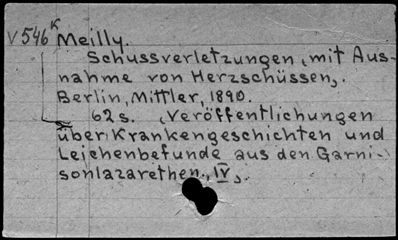 V 546 K Meilly.
Schussverletzungen, mit Aus-
nahme von Herzschüssen,.
Berlin, Mittler, 1890.
62 s. (Veröffentlichungen
über Krankengeschichten und
Leichenbefunde aus den Garni-
sonlazarethen., IV,.